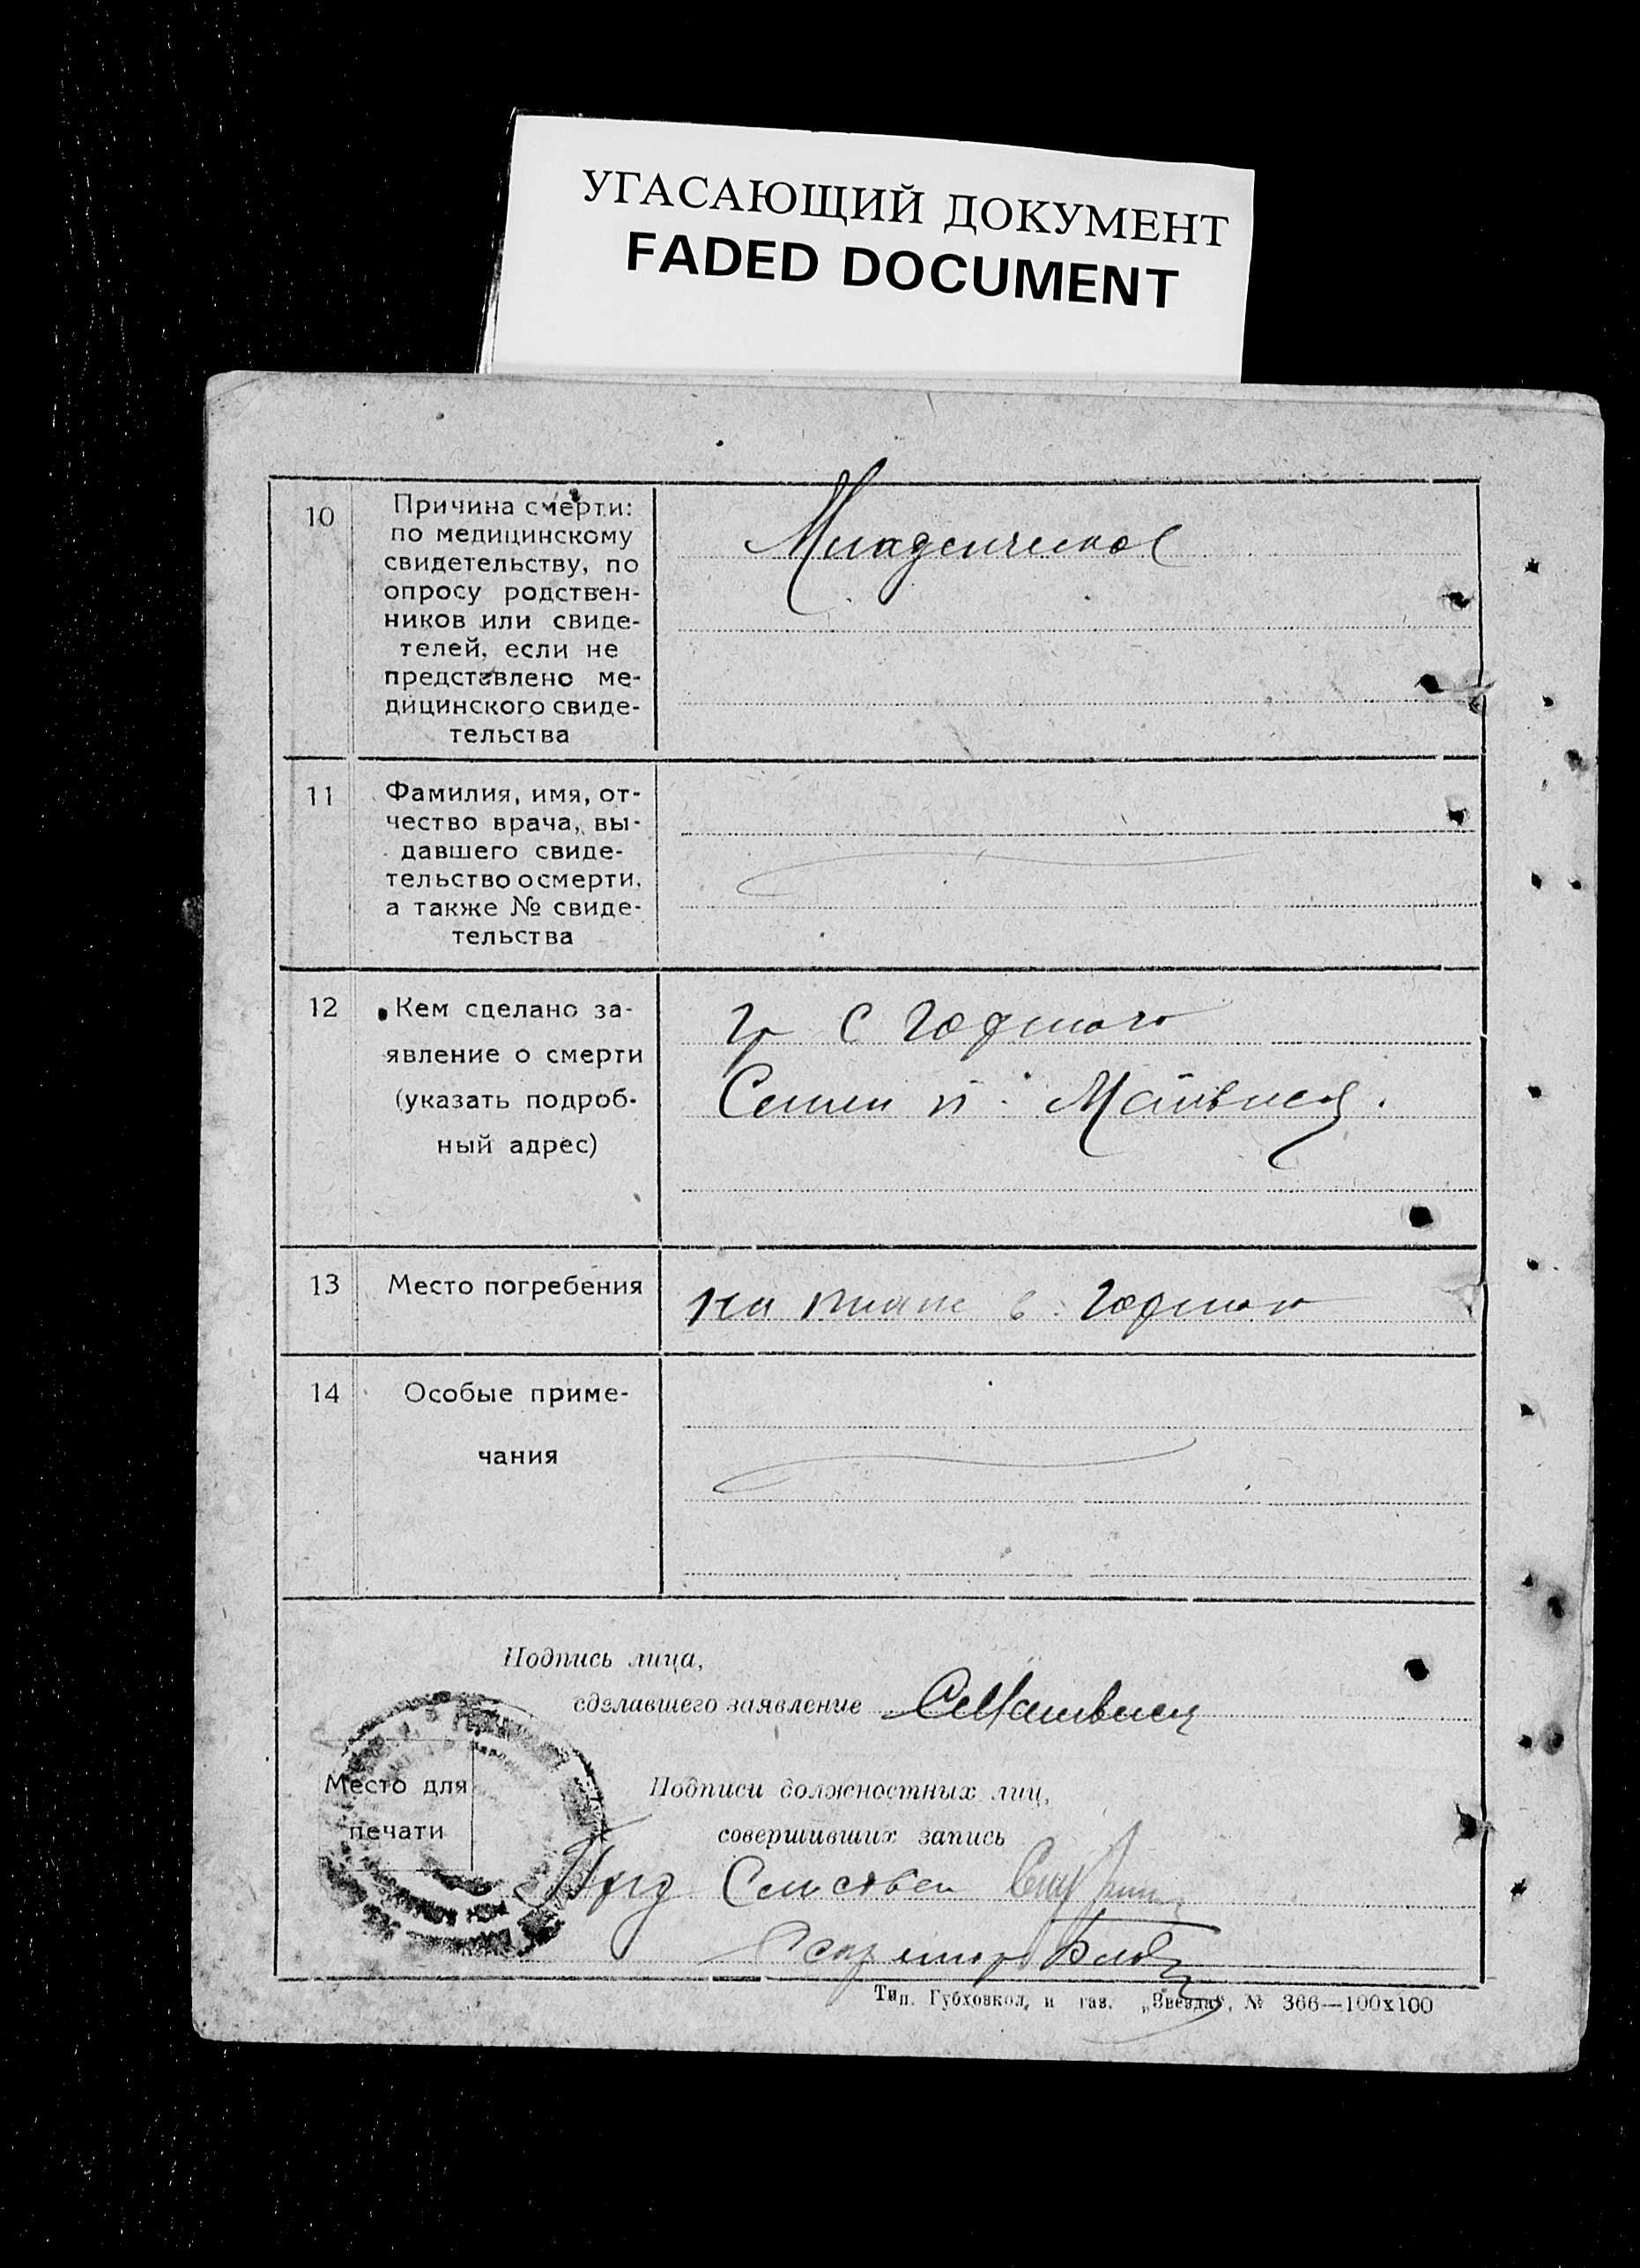 УГАСАЮЩИЙ ДОКУМЕНТ
FADED DOCUMENT
10
Причина смерти:
по медицинскому
свидетельству, по
опросу родствен-
ников или свиде-
телей, если не
представлено ме-
дицинского свиде-
тельства
Младенческое
11
Фамилия, имя, от-
чество врача, вы-
давшего свиде-
тельство о смерти,
а также № свиде-
тельства
12
Кем сделано за-
явление о смерти
(указать подроб-
ный адрес)
гр с
13
Место погребения
на
14
Особые приме-
чания
Подпись лица,
сделавшего заявление
Место для
печати
Подписи должностных лиц,
совершивших запись
Прд
Тип. Губховкол, и газ. „Звезда", № 366—100х100